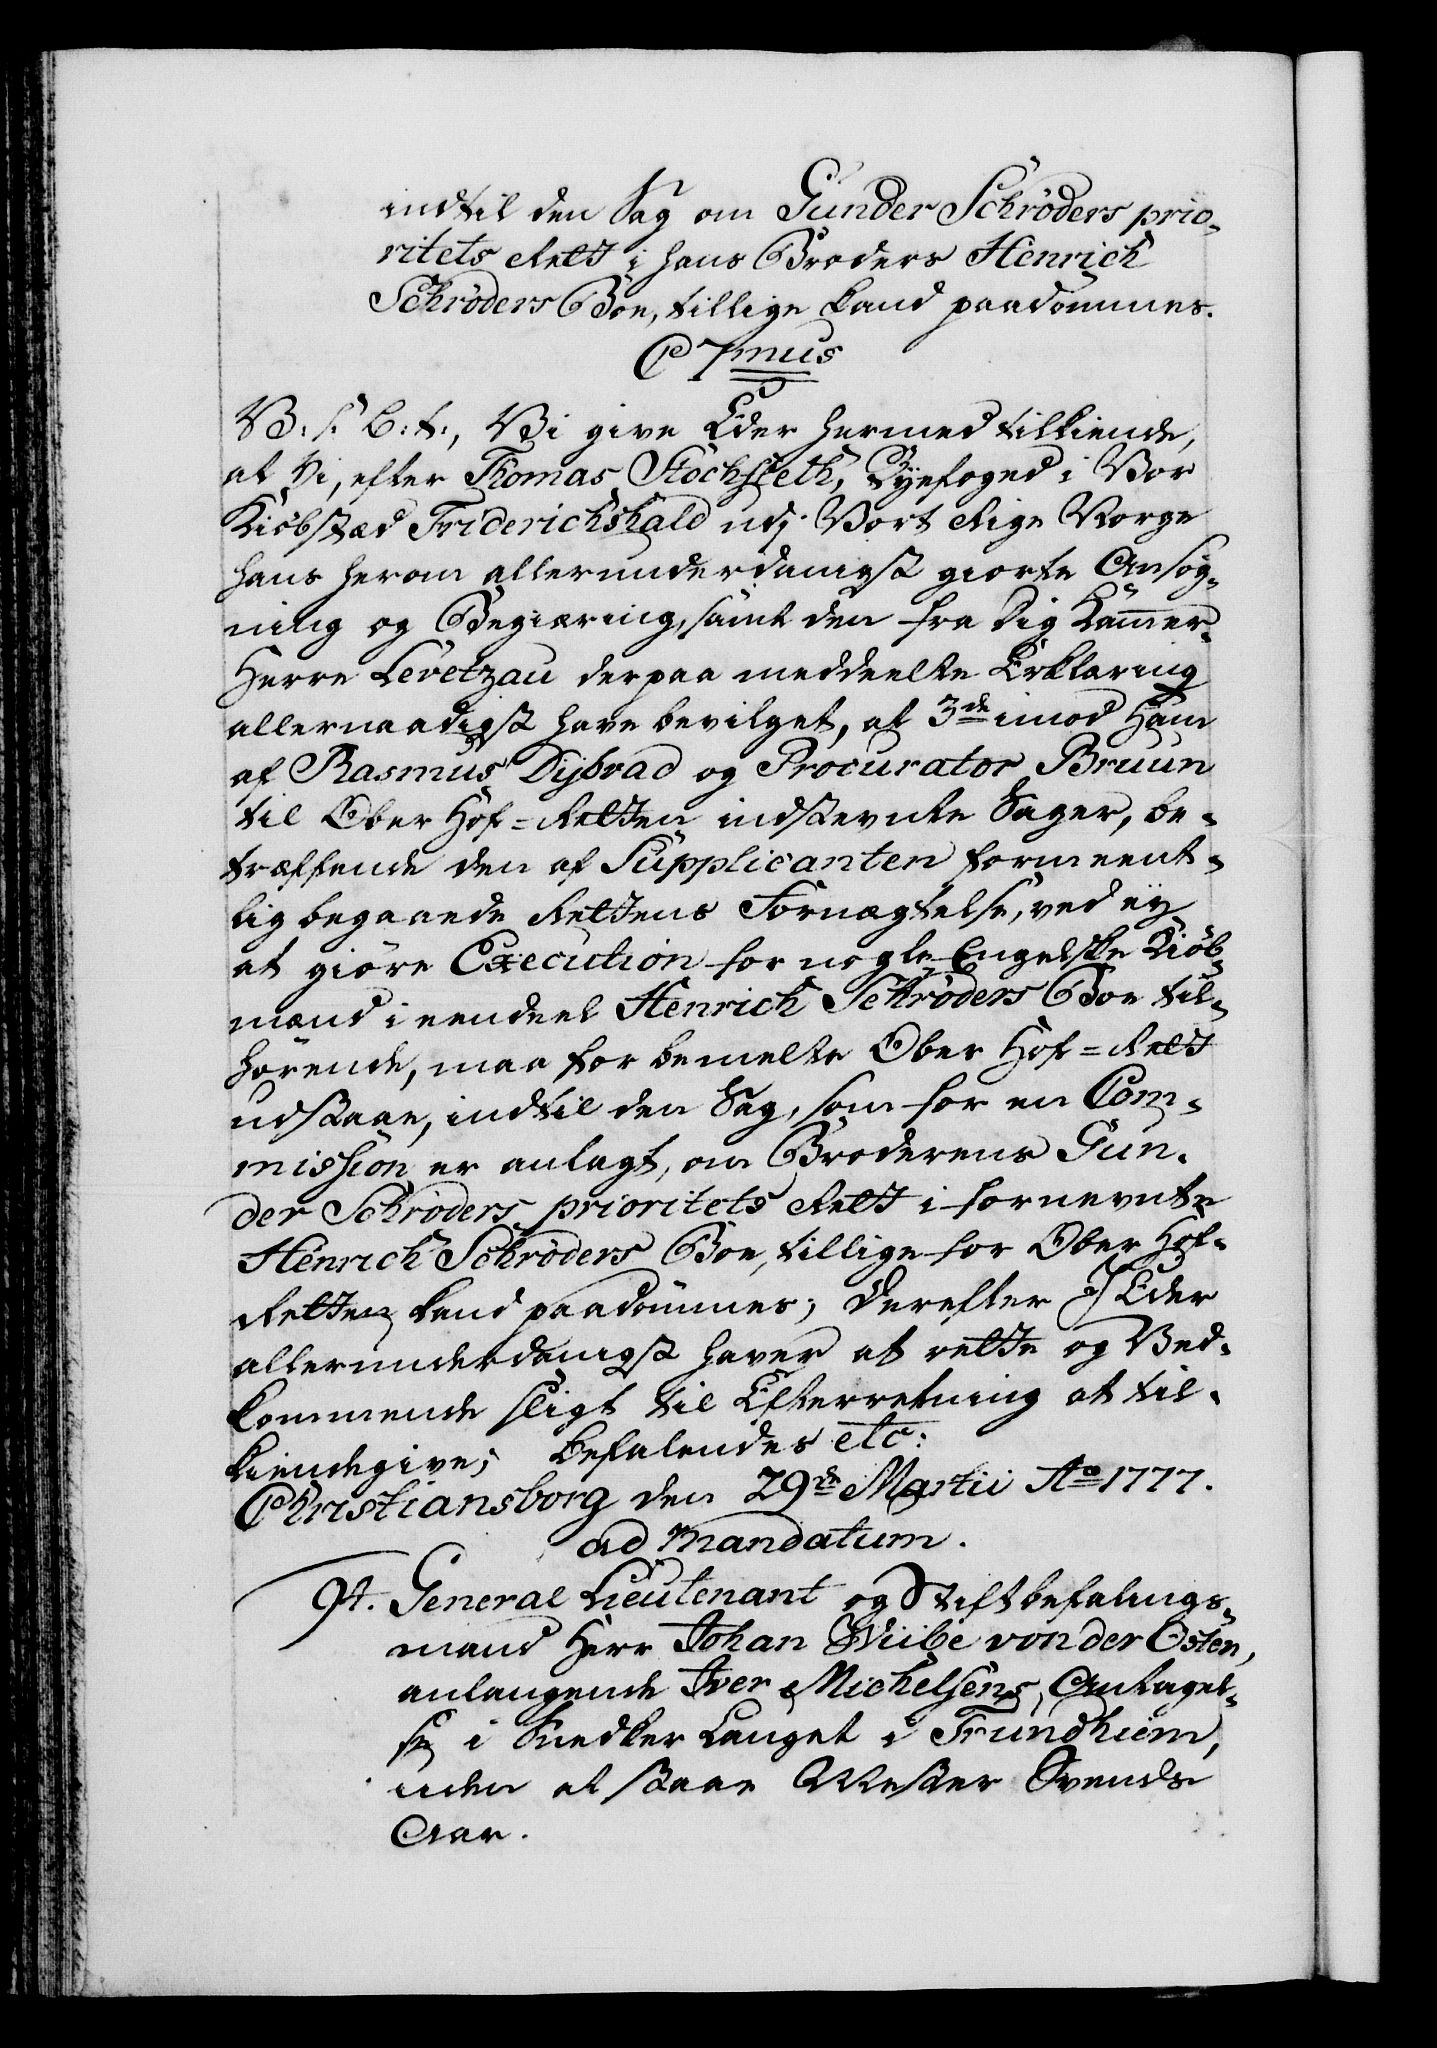 indtil den Sag om Gunder Schröders prio-
ritets Rett i hans Broders Henrich
Schröders Boe, tillige kand paadömmes.
C 7mus
V. s. b. t., Vi give Eder hermed tilkiende,
at Vi, efter Thomas Stochfleth, Byefoged i Vor
Kiöbstæd Friderichshald udj Vort Rige Norge
hans herom allerunderdanigst giorte Ansög-
ning og Begiæring, samt den fra Dig Kammer-
Herre Levetzau derpaa meddeelte Erklaring
allernaadigst have bevilget, at 3de imod Ham
af Rasmus Dybrad og Procurator Bruun
til Ober Hof-Retten indstevnte Sager, be-
træffende den af Supplicanten formeent-
lig begaaede Rettens Fornægtelse, ved ey
at giöre Execution for nogle Engelske Kiöb-
mænd i eendeel Henrich Schröders Boe til-
hörende, maa for bemelte Ober Hof-Rett
udstaae, indtil den Sag, som for en Com-
mission er anlagt, om Broderens Gun-
der Schröders prioritets Rett i fornevnte
Henrich Schröders Boe, tillige for Ober Hof-
Retten kand paadömmes; Derefter I Eder
allerunderdanigst haver at rette og Ved-
kommende sligt til Efterretning at til-
kiendegive; Befalendes etc:
Christiansborg den 29de Martii Ao 1777.
ad mandatum.
94. General Lieutenant og Stiftbefalings-
mand Herr Johan Wiibe von der Osten,
anlangende Iver Michelsens Antagel-
se i Snedker Lauget i Trundhiem,
uden at staae Mester Svends
Aar.